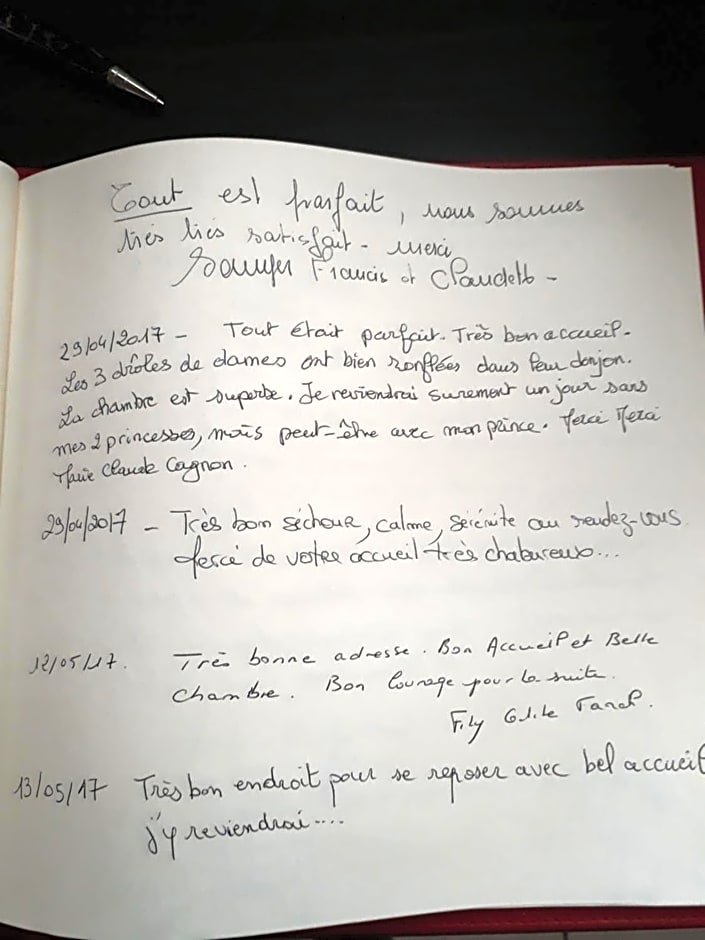 Tout est parfait, nous sommes
très très satisfait - merci
Francis et Claudette -
29/04/2017 - Tout était parfait. Très bon accueil.
Les 3 drôles de dames ont bien ronflées dans leur donjon.
La chambre est superbe. Je reviendrai surement un jour sans
mes 2 princesses, mais peut-être avec mon prince. Merci Merci
Marie Claude Cagnon.
29/04/2017 - Très bon séchour, calme, sérénité au rendez-vous
Merci de votre accueil très chaleureux...
12/05/17. Très bonne adresse. Bon Accueil et Belle
Chambre. Bon Courage pour la suite.
13/05/17 Très bon endroit pour se reposer avec bel accueil
j'y reviendrai....